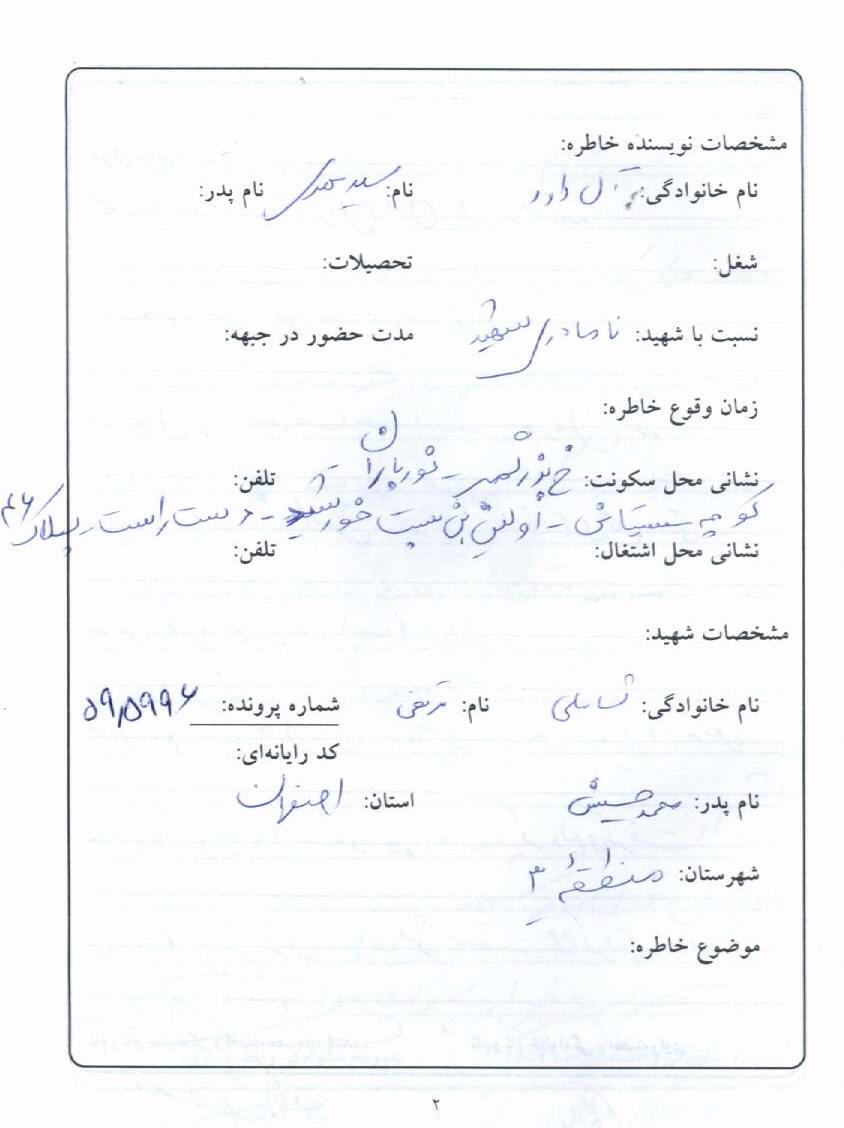 مشخصات نویسنده خاطره:
نام خانوادگی: آل داود نام: سید مهدی نام پدر:
شغل: تحصیلات:
نسبت با شهید: شهید مدت حضور در جبهه:
زمان وقوع خاطره:
نشانی محل سکونت: خ بزرگمهر - نورباران - تلفن:
کوچه - اولین بن بست خورشید - دست راست - پلاک ۴۶
نشانی محل اشتغال: تلفن:
مشخصات شهید:
نام خانوادگی: نام: مرتضی شماره پرونده: ۵۹۸۵۹۹۶
کد رایانه‌ای:
نام پدر: محمدحسین استان: اصفهان
شهرستان: منطقهٔ ۳
موضوع خاطره:
۲